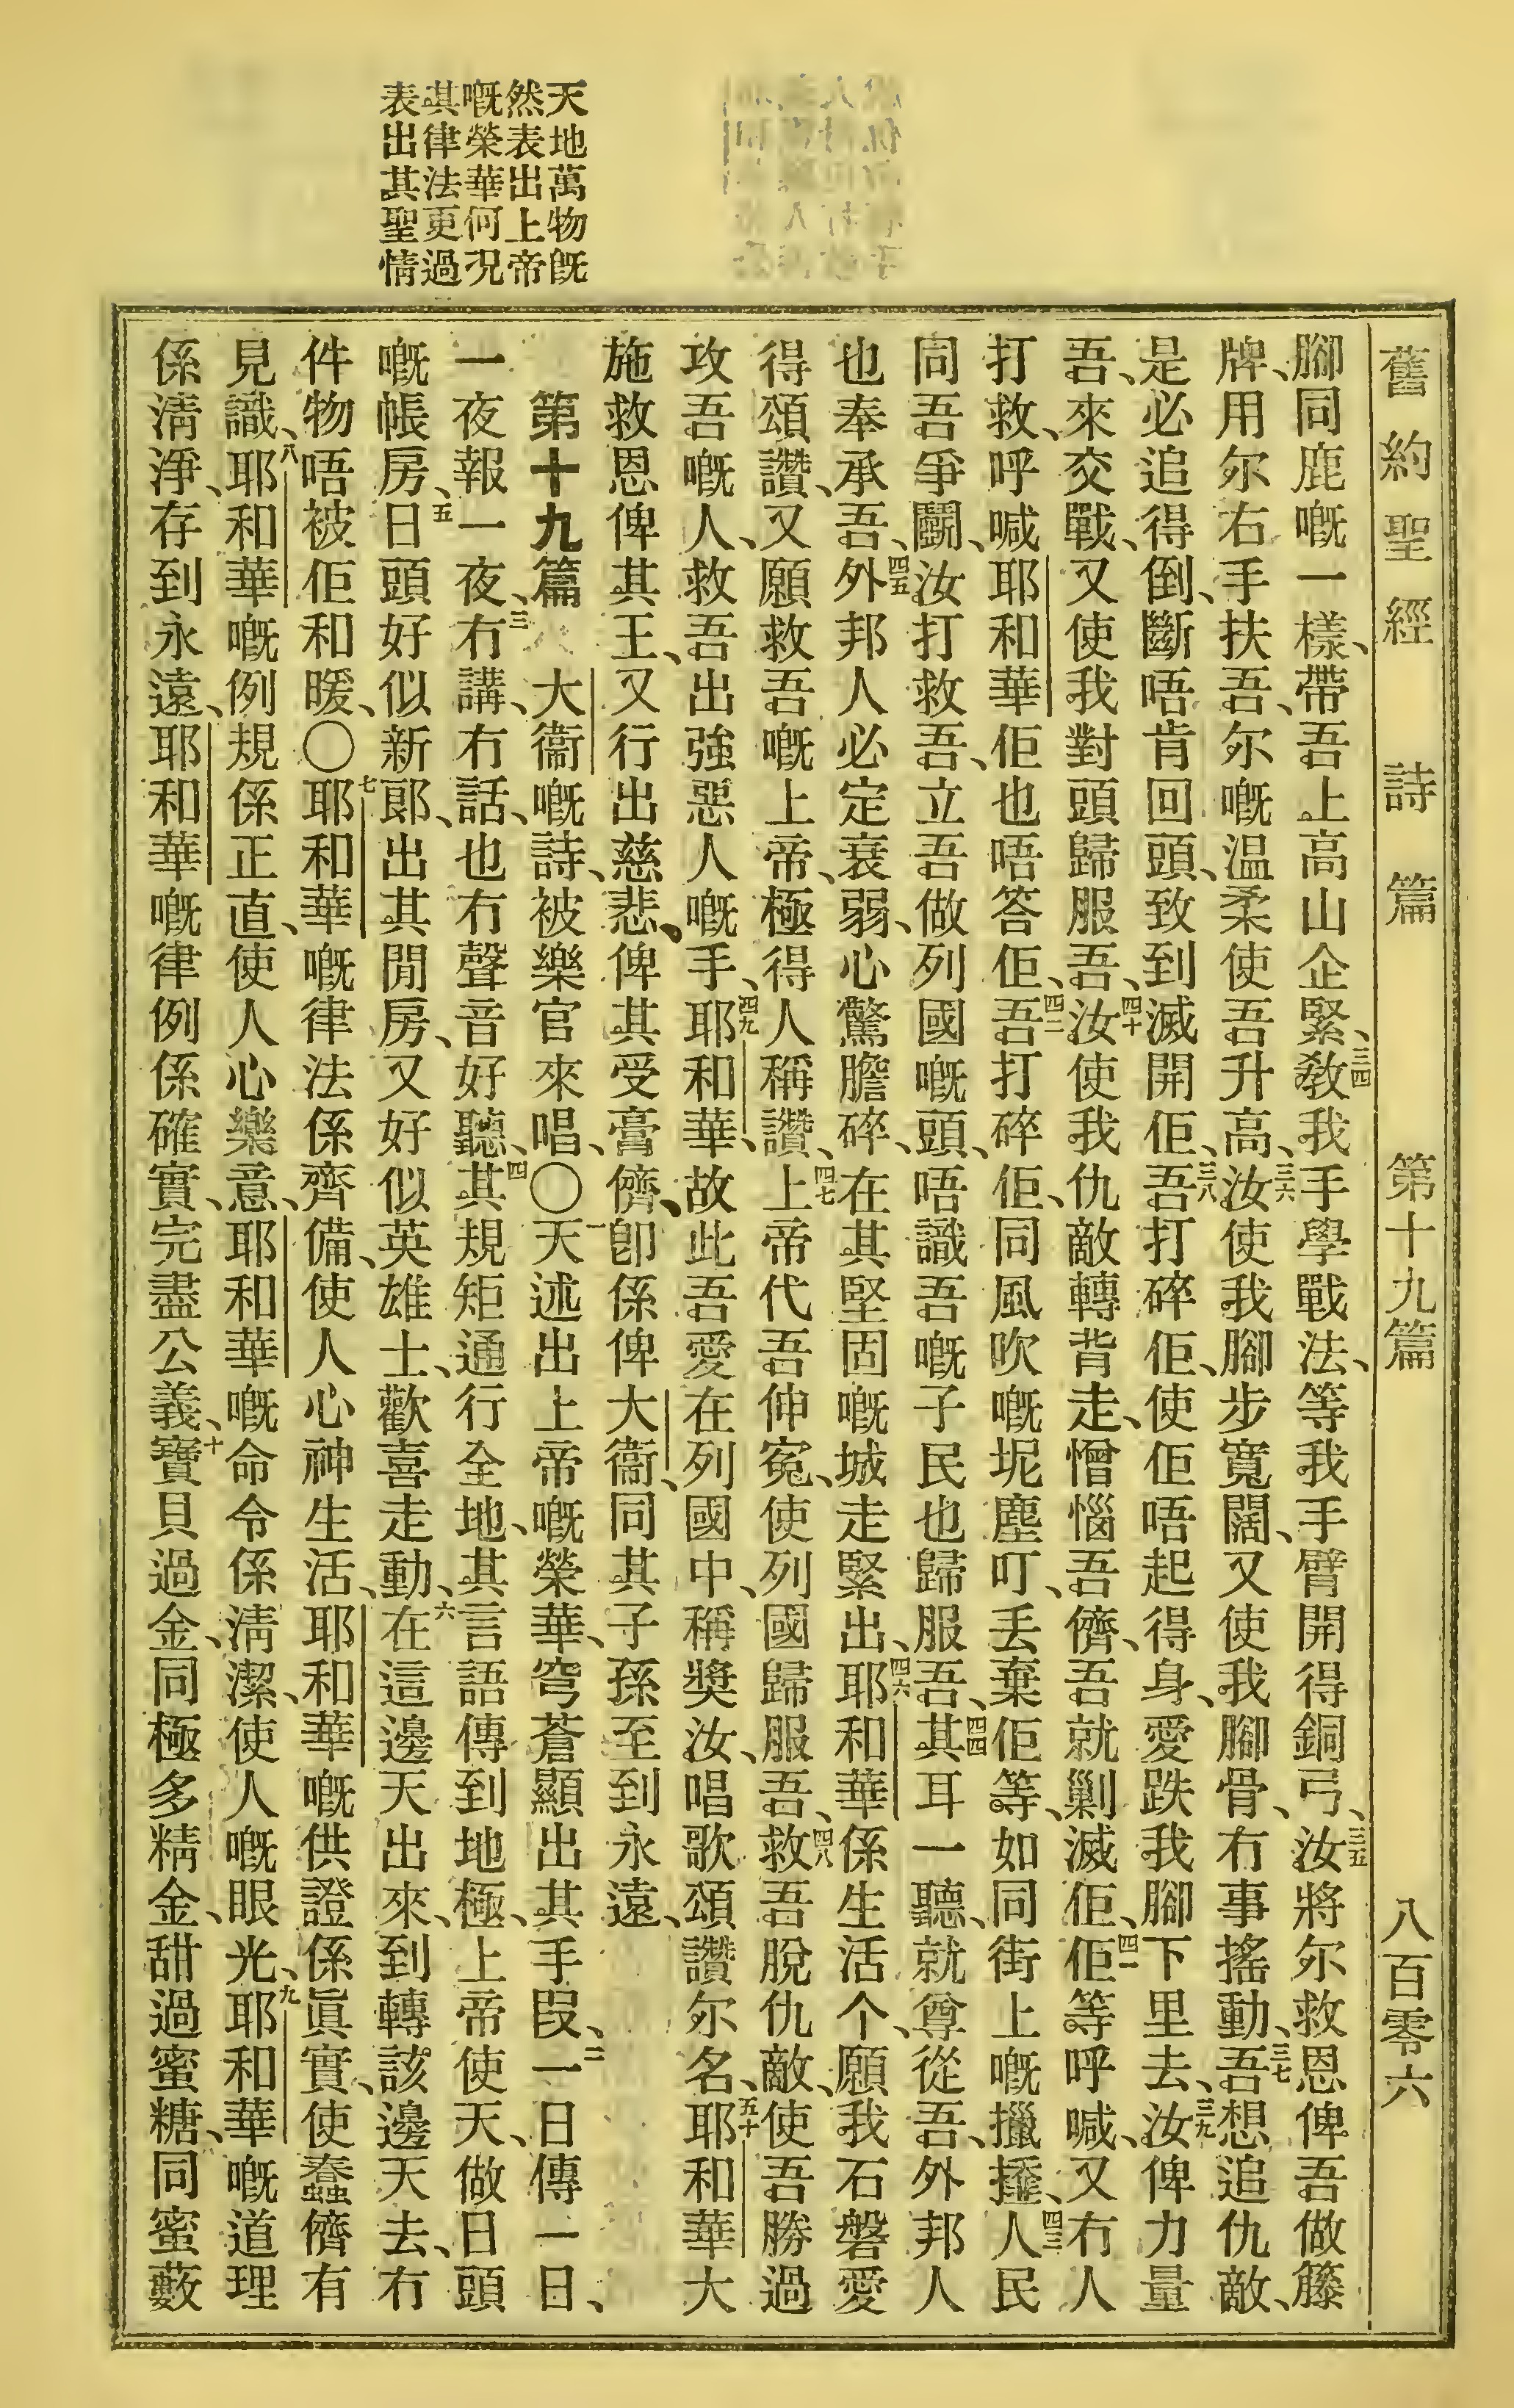 天地萬物旣
然表出上帝
嘅榮華何況
其律法更過
表出其聖情
舊約聖經 詩篇 第十九篇 八百零六
腳同鹿嘅一樣、帶吾上高山企緊、三四教我手學戰法、等我手臂開得銅弓、三五汝將尔救恩俾吾做籐
牌、用尔右手扶吾、尔嘅温柔使吾升高、三六汝使我腳步寬闊、又使我腳骨、冇事搖動、三七吾想追仇敵、
是必追得倒、斷唔肯回頭、致到滅開佢、三八吾打碎佢、使佢唔起得身、愛跌我腳下里去、三九汝俾力量
吾、來交戰、又使我對頭歸服吾、四十汝使我仇敵轉背走、憎惱吾儕、吾就剿滅佢、四一佢等呼喊、又冇人
打救、呼喊耶和華佢也唔答佢、四二吾打碎佢、同風吹嘅坭塵叮、丢棄佢等、如同街上嘅擸𢶍、四三人民
同吾爭鬬、汝打救吾、立吾做列國嘅頭、唔識吾嘅子民也歸服吾、四四其耳一聽、就尊從吾、外邦人
也奉承吾、四五外邦人必定衰弱、心驚膽碎、在其堅固嘅城走緊出、四六耶和華係生活个、願我石磐愛
得頌讚、又願救吾嘅上帝、極得人稱讚、四七上帝代吾伸冤、使列國歸服吾、四八救吾脫仇敵、使吾勝過
攻吾嘅人、救吾出強惡人嘅手、四九耶和華、故此吾愛在列國中、稱獎汝、唱歌頌讚尔名、五十耶和華大
施救恩俾其王、又行出慈悲、俾其受膏儕、卽係俾大衞、同其子孫至到永遠、
第十九篇 大衞嘅詩、被樂官來唱、〇一天述出上帝嘅榮華、穹蒼顯出其手段、二一日傳一日、
一夜報一夜、三冇講、冇話、也冇聲音好聽、四其規矩通行全地、其言語傳到地極、上帝使天、做日頭
嘅帳房、五日頭好似新郎、出其閒房、又好似英雄士、歡喜走動、六在這邊天出來、到轉該邊天去、冇
件物唔被佢和暖、〇七耶和華嘅律法係齊備、使人心神生活、耶和華嘅供證係眞實、使蠢儕有
見識、八耶和華嘅例規係正直、使人心樂意、耶和華嘅命令係淸潔、使人嘅眼光、九耶和華嘅道理
係淸淨、存到永遠、耶和華嘅律例係確實、完盡公義、十寶貝過金、同極多精金、甜過蜜糖、同蜜藪